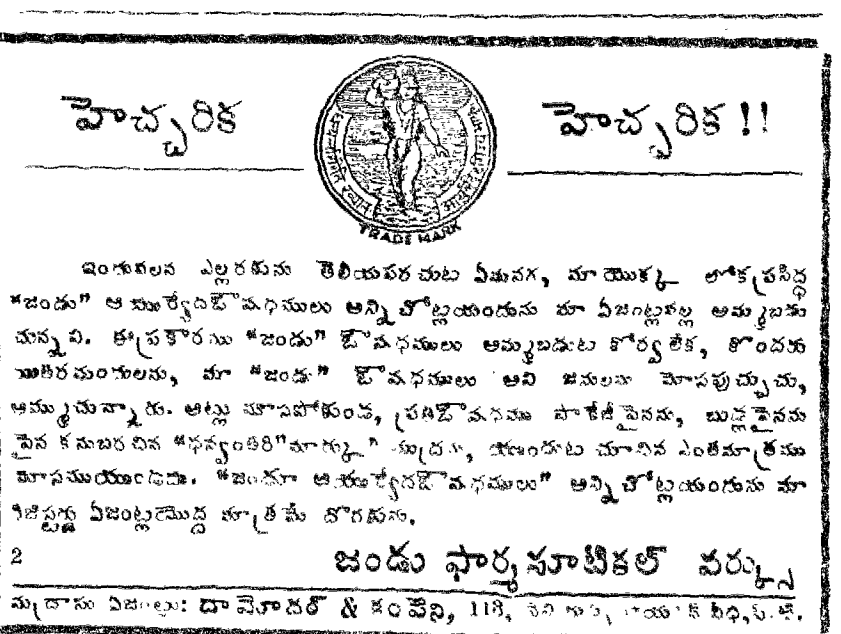 హెచ్చరిక హెచ్చరిక !!
TRADE MARK
ఇందువలన ఎల్లరకును తెలియపరచుట ఏమనగ, మా యొక్క లోకప్రసిద్ధ
"జండు" ఆయుర్వేదఔషధములు అన్నిచోట్లయందును మా ఏజంట్లవల్ల అమ్మబడు
చున్నవి. ఈప్రకారము "జండు" ఔషధములు అమ్మబడుట కోర్వలేక, కొందరు
యితరమందులను, మా "జండు" ఔషధములు అని జనులను మోసపుచ్చుచు,
అమ్ముచున్నారు. అట్లు మోసపోకుండ, ప్రతిఔషధము పాకేజీపైనను, బుడ్లపైనను
పైన కనుబరచిన "ధన్వంతరి"మార్కు ముద్రను, యుండుట చూచిన ఎంతమాత్రము
మోసముయుండదు. "జండూ ఆయుర్వేదఔషధములు" అన్నిచోట్లయందును మా
రిజిస్టర్డు ఏజంట్లయొద్ద మాత్రమే దొరకును.
2 జండు ఫార్మసూటికల్ వర్క్సు
మద్రాసు ఏజంట్లు: దామోదర్ & కంపెని, 118, వీధి,